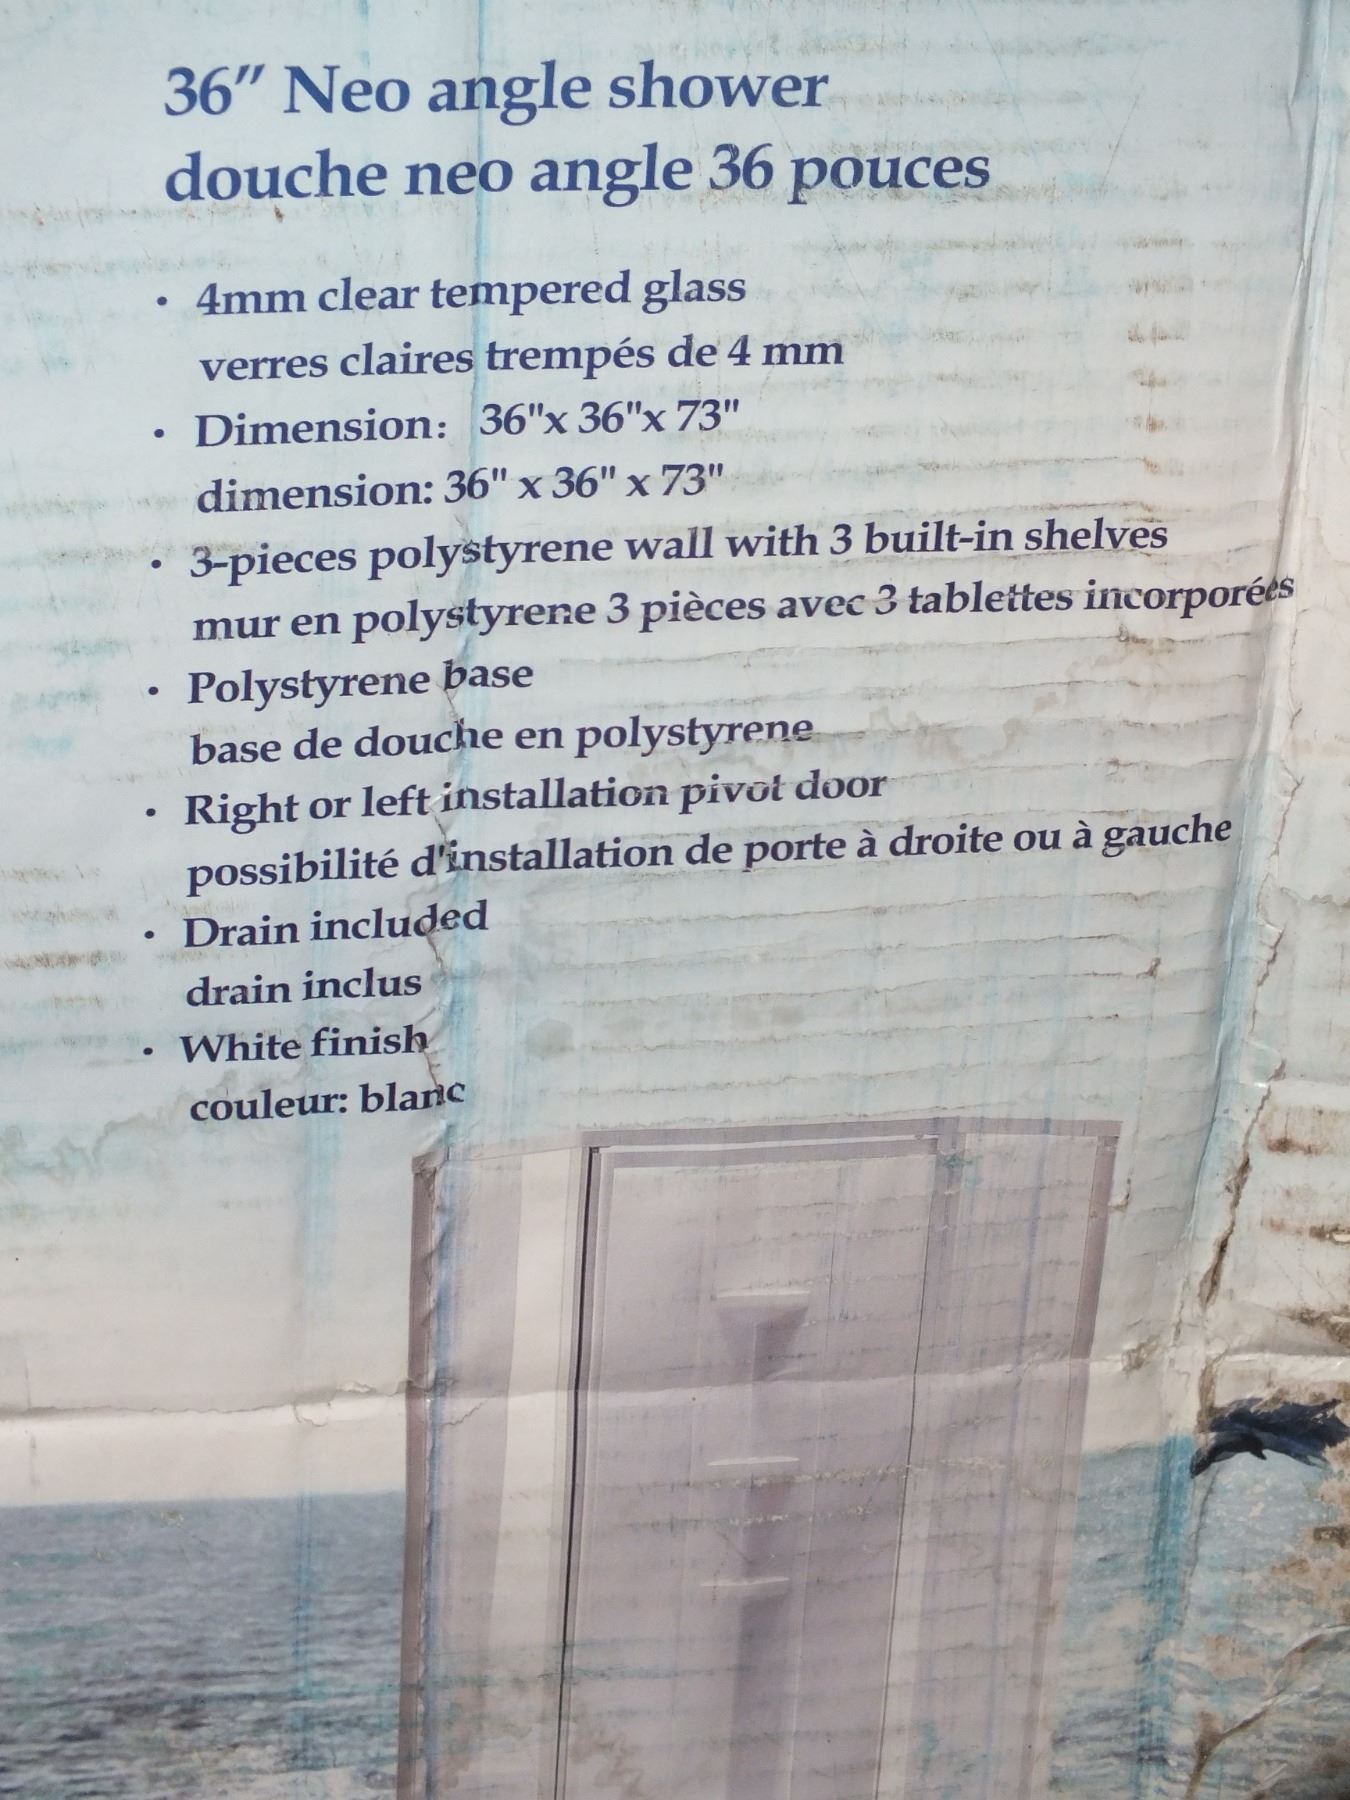 36" Neo angle shower
douche neo angle 36 pouces
• 4mm clear tempered glass
verres claires trempés de 4 mm
• Dimension: 36"x 36"x 73"
dimension: 36" x 36" x 73"
• 3-pieces polystyrene wall with 3 built-in shelves
mur en polystyrene 3 pièces avec 3 tablettes incorporées
• Polystyrene base
base de douche en polystyrene
• Right or left installation pivot door
possibilité d'installation de porte à droite ou à gauche
• Drain included
drain inclus
• White finish
couleur: blanc